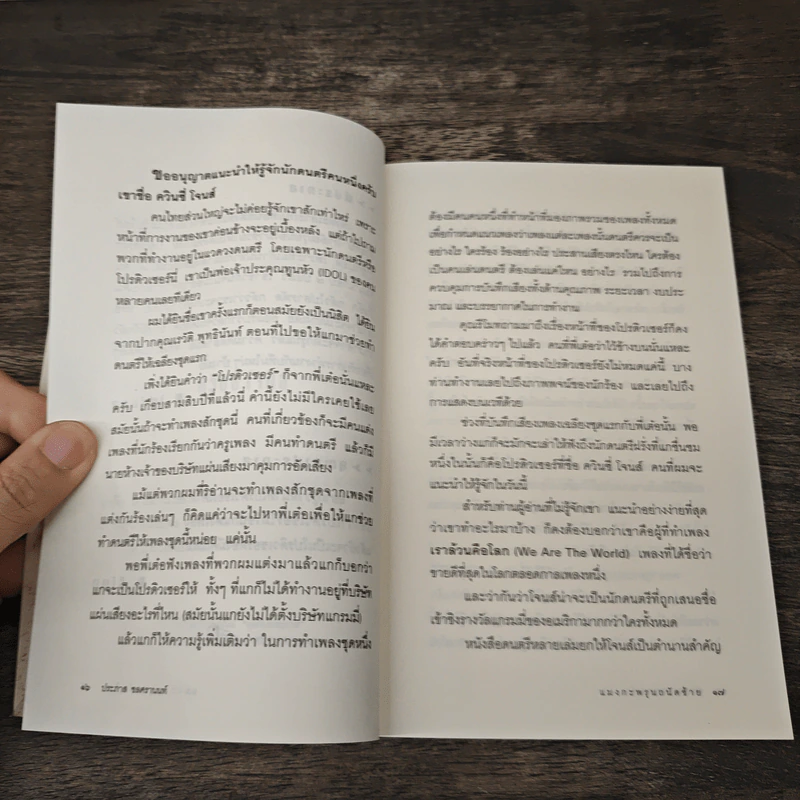 ขออนุญาตแนะนำให้รู้จักนักดนตรีคนหนึ่งครับ
เขาชื่อ ควินซี่ โจนส์
คนไทยส่วนใหญ่จะไม่ค่อยรู้จักเขาสักเท่าไหร่ เพราะ
หน้าที่การงานของเขาค่อนข้างจะอยู่เบื้องหลัง แต่ถ้าไปถาม
พวกที่ทำงานอยู่ในแวดวงดนตรี โดยเฉพาะนักดนตรีหรือ
โปรดิวเซอร์นี่ เขาเป็นพ่อเจ้าประคุณทูนหัว (IDOL) ของคน
หลายคนเลยทีเดียว
ผมได้ยินชื่อเขาครั้งแรกก็ตอนสมัยยังเป็นนิสิต ได้ยิน
จากปากคุณเรวัติ พุทธินันท์ ตอนที่ไปขอให้แกมาช่วยทำ
ดนตรีให้เฉลียงชุดแรก
เพิ่งได้ยินคำว่า "โปรดิวเซอร์" ก็จากพี่เต๋อนั่นแหละ
ครับ เกือบสามสิบปีที่แล้วนี่ คำนี้ยังไม่มีใครเคยใช้เลย
สมัยนั้นถ้าจะทำเพลงสักชุดนี่ คนที่เกี่ยวข้องก็จะมีคนแต่ง
เพลงที่นักร้องเรียกกันว่าครูเพลง มีคนทำดนตรี แล้วก็มี
นายห้างเจ้าของบริษัทแผ่นเสียงมาคุมการอัดเสียง
แม้แต่พวกผมที่ริอ่านจะทำเพลงสักชุดจากเพลงที่
แต่งกันร้องเล่นๆ ก็คิดแค่ว่าจะไปหาพี่เต๋อเพื่อให้แกช่วย
ทำดนตรีให้เพลงชุดนี้หน่อย แค่นั้น
พอพี่เต๋อฟังเพลงที่พวกผมแต่งมาแล้วแกก็บอกว่า
แกจะเป็นโปรดิวเซอร์ให้ ทั้งๆ ที่แกก็ไม่ได้ทำงานอยู่ที่บริษัท
แผ่นเสียงอะไรที่ไหน (สมัยนั้นแกยังไม่ได้ตั้งบริษัทแกรมมี่)
แล้วแกก็ให้ความรู้เพิ่มเติมว่า ในการทำเพลงชุดหนึ่ง
๑๖ ประภาส ชลศรานนท์
ต้องมีคนคนหนึ่งที่ทำหน้าที่มองภาพรวมของเพลงทั้งหมด
เพื่อกำหนดแนวเพลงว่าเพลงแต่ละเพลงนั้นดนตรีควรจะเป็น
อย่างไร ใครร้อง ร้องอย่างไร ประสานเสียงตรงไหน ใครต้อง
เป็นคนเล่นดนตรี ต้องเล่นแค่ไหน อย่างไร รวมไปถึงการ
ควบคุมการบันทึกเสียงทั้งด้านคุณภาพ ระยะเวลา งบประ
มาณ และบรรยากาศในการทำงาน
คุณรีโมทถามมาถึงเรื่องหน้าที่ของโปรดิวเซอร์ก็คง
ได้คำตอบคร่าวๆ ไปแล้ว คนที่พี่เต๋อว่าไว้ข้างบนนั่นแหละ
ครับ อันที่จริงหน้าที่ของโปรดิวเซอร์ยังไม่หมดแค่นี้ บาง
ท่านทำงานเลยไปถึงภาพพจน์ของนักร้อง และเลยไปถึง
การแสดงบนเวทีด้วย
ช่วงที่บันทึกเสียงเพลงเฉลียงชุดแรกกับพี่เต๋อนั้น พอ
มีเวลาว่างแกก็จะมักจะเล่าให้ฟังถึงนักดนตรีฝรั่งที่แกชื่นชม
หนึ่งในนั้นก็คือโปรดิวเซอร์ที่ชื่อ ควินซี่ โจนส์ คนที่ผมจะ
แนะนำให้รู้จักในวันนี้
สำหรับท่านผู้อ่านที่ไม่รู้จักเขา แนะนำอย่างง่ายที่สุด
ว่าเขาทำอะไรมาบ้าง ก็คงต้องบอกว่าเขาคือผู้ที่ทำเพลง
เราล้วนคือโลก (We Are The World) เพลงที่ได้ชื่อว่า
ขายดีที่สุดในโลกตลอดกาลเพลงหนึ่ง
และว่ากันว่าโจนส์น่าจะเป็นนักดนตรีที่ถูกเสนอชื่อ
เข้าชิงรางวัลแกรมมี่ของอเมริกามากกว่าใครทั้งหมด
หนังสือดนตรีหลายเล่มยกให้โจนส์เป็นตำนานสำคัญ
แมงกะพรุนถนัดซ้าย ๑๗